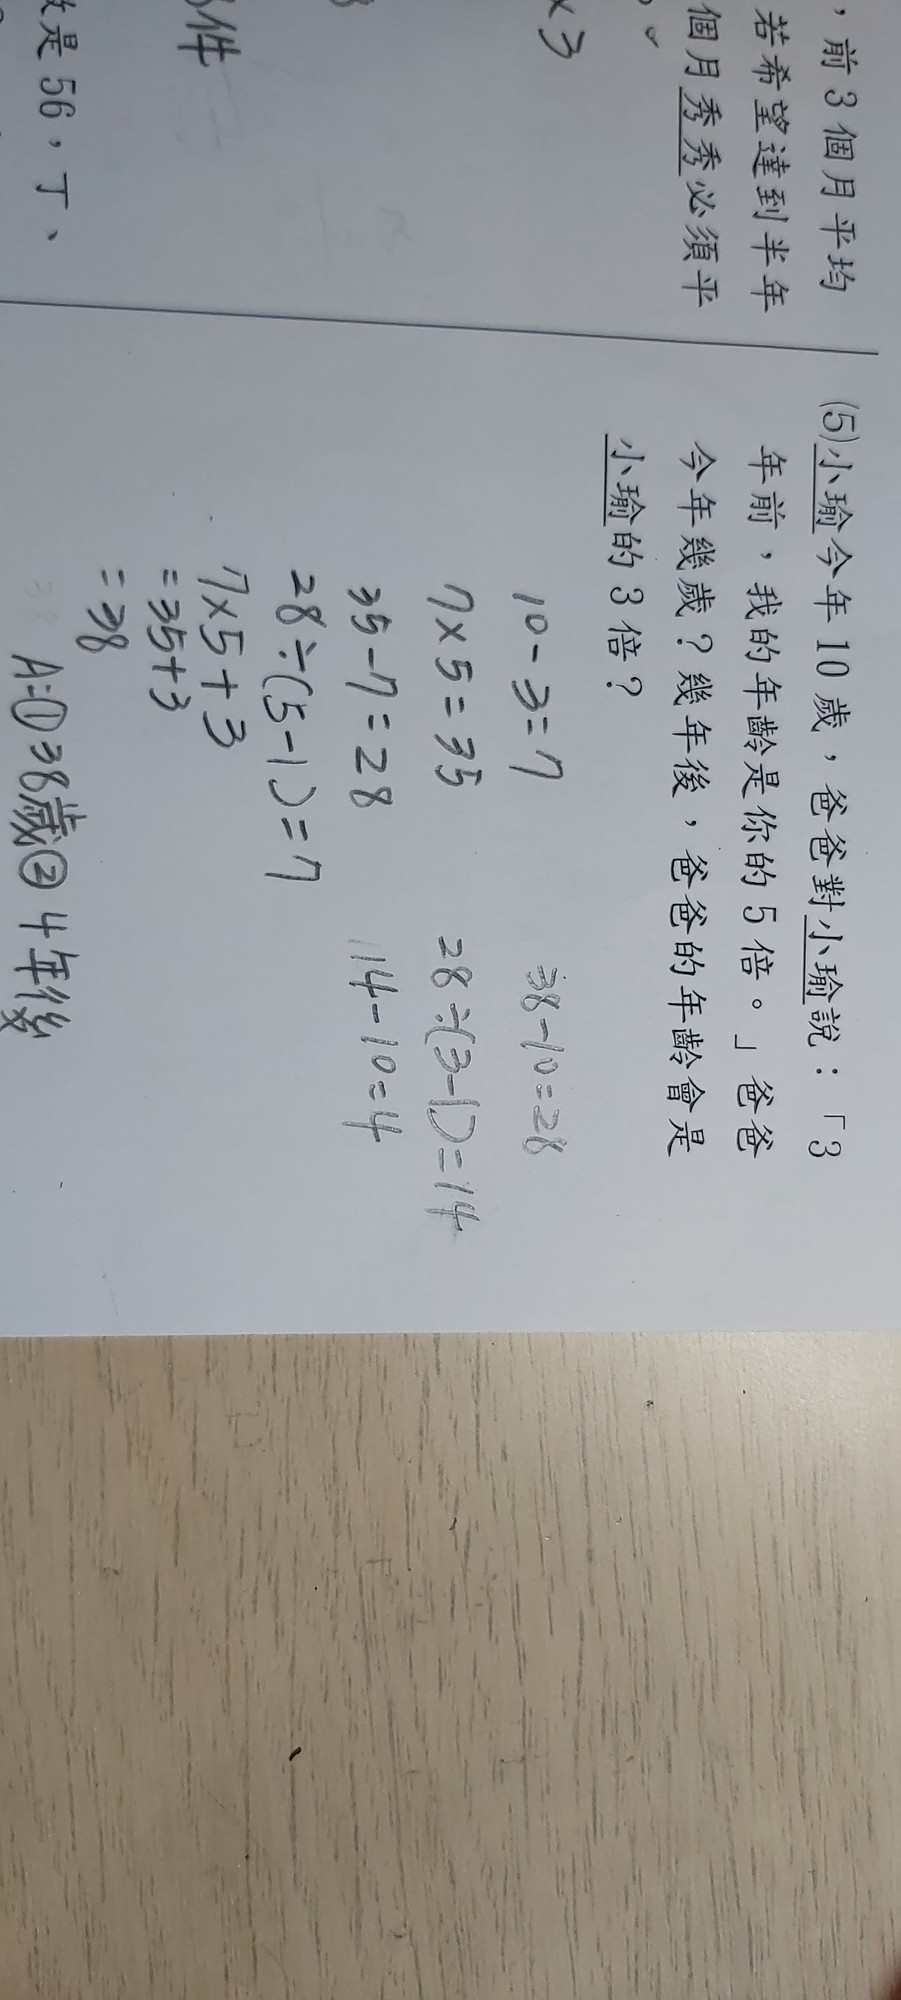 ，前3個月平均
若希望達到半年
個月秀秀必須平
×3
件
是56，丁、
(5)小瑜今年10歲，爸爸對小瑜說：「3
年前，我的年齡是你的5倍。」爸爸
今年幾歲？幾年後，爸爸的年齡會是
小瑜的3倍？
10-3=7
7×5=35
35-7=28
28÷(5-1)=7
7×5+3
=35+3
=38
38-10=28
28÷(3-1)=14
14-10=4
A:①38歲②4年後